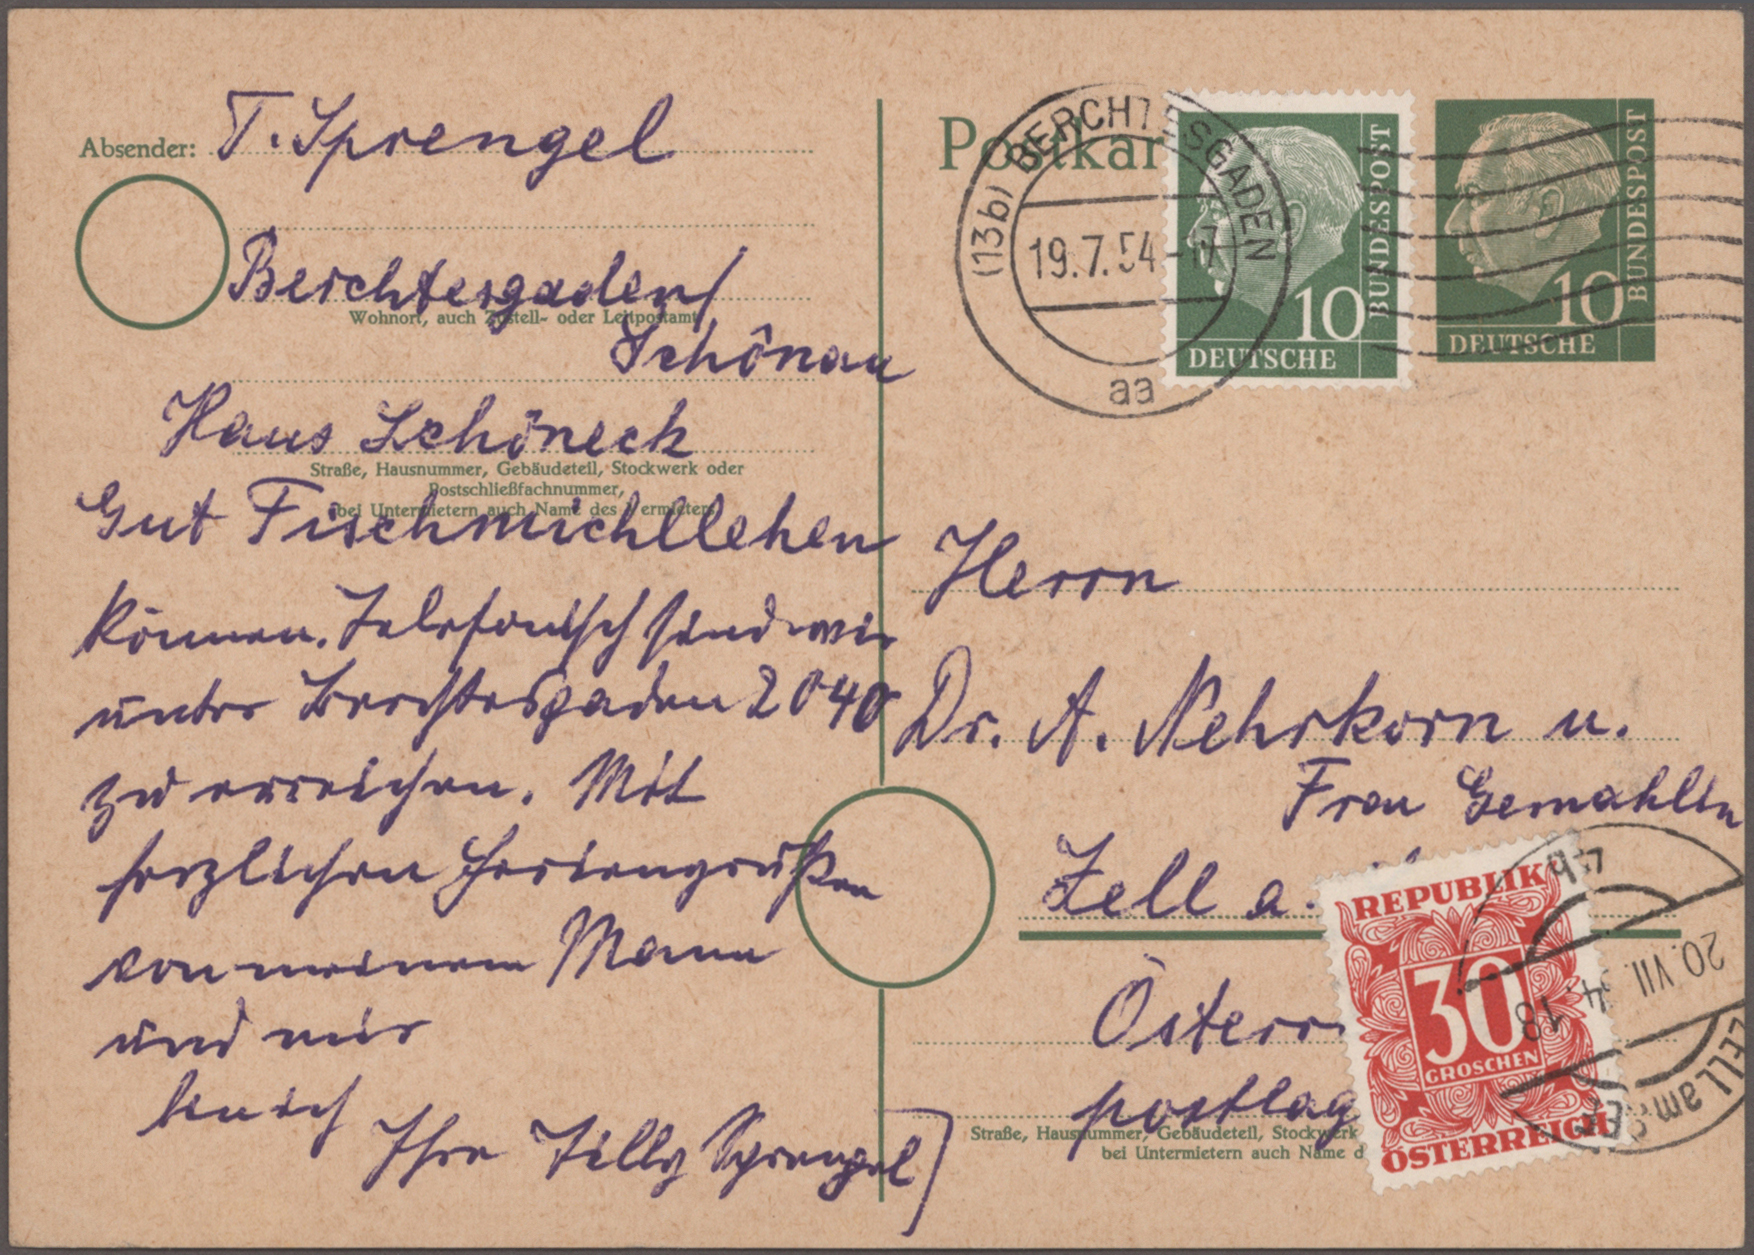 Absender: T. Sprengel
Berchtesgaden/
Wohnort, auch Zustell- oder Leitpostamt
Schönau
Haus Schöneck
Straße, Hausnummer, Gebäudeteil, Stockwerk oder
Postschließfachnummer,
bei Untermietern auch Name des Vermieters
Gut Fischmichllehen
können. Telefonisch sind wir
unter Berchtesgaden 2040
zu erreichen. Mit
herzlichen Feriengrüßen
von meinem Mann
und mir
bin ich
Ihre Tilly Sprengel
Postkar
(13b) BERCHTESGADEN
19.7.54-17
aa
10
DEUTSCHE
BUNDESPOST
10
DEUTSCHE
BUNDESPOST
Herrn
Dr. A. Nehrkorn u.
Frau Gemahlin
Zell a.
Österr
postlag
Straße, Hausnummer, Gebäudeteil, Stockwerk
bei Untermietern auch Name d
REPUBLIK
30
GROSCHEN
ÖSTERREICH
20. VII. 54 18
ZELL am SEE